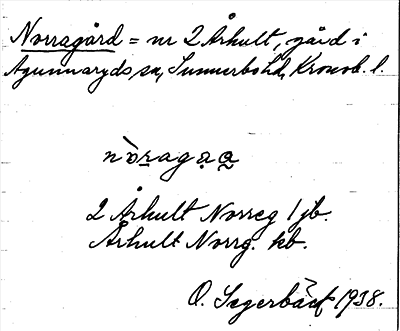 Norragård = nr 2 Århult, gård i
Agunnaryds sn, Sunnerbo hd, Kronob. l.
nòragạa̰
2 Århult Norreg 1 jb.
Århult Norrg. kb.
O. Segerbäck 1938.